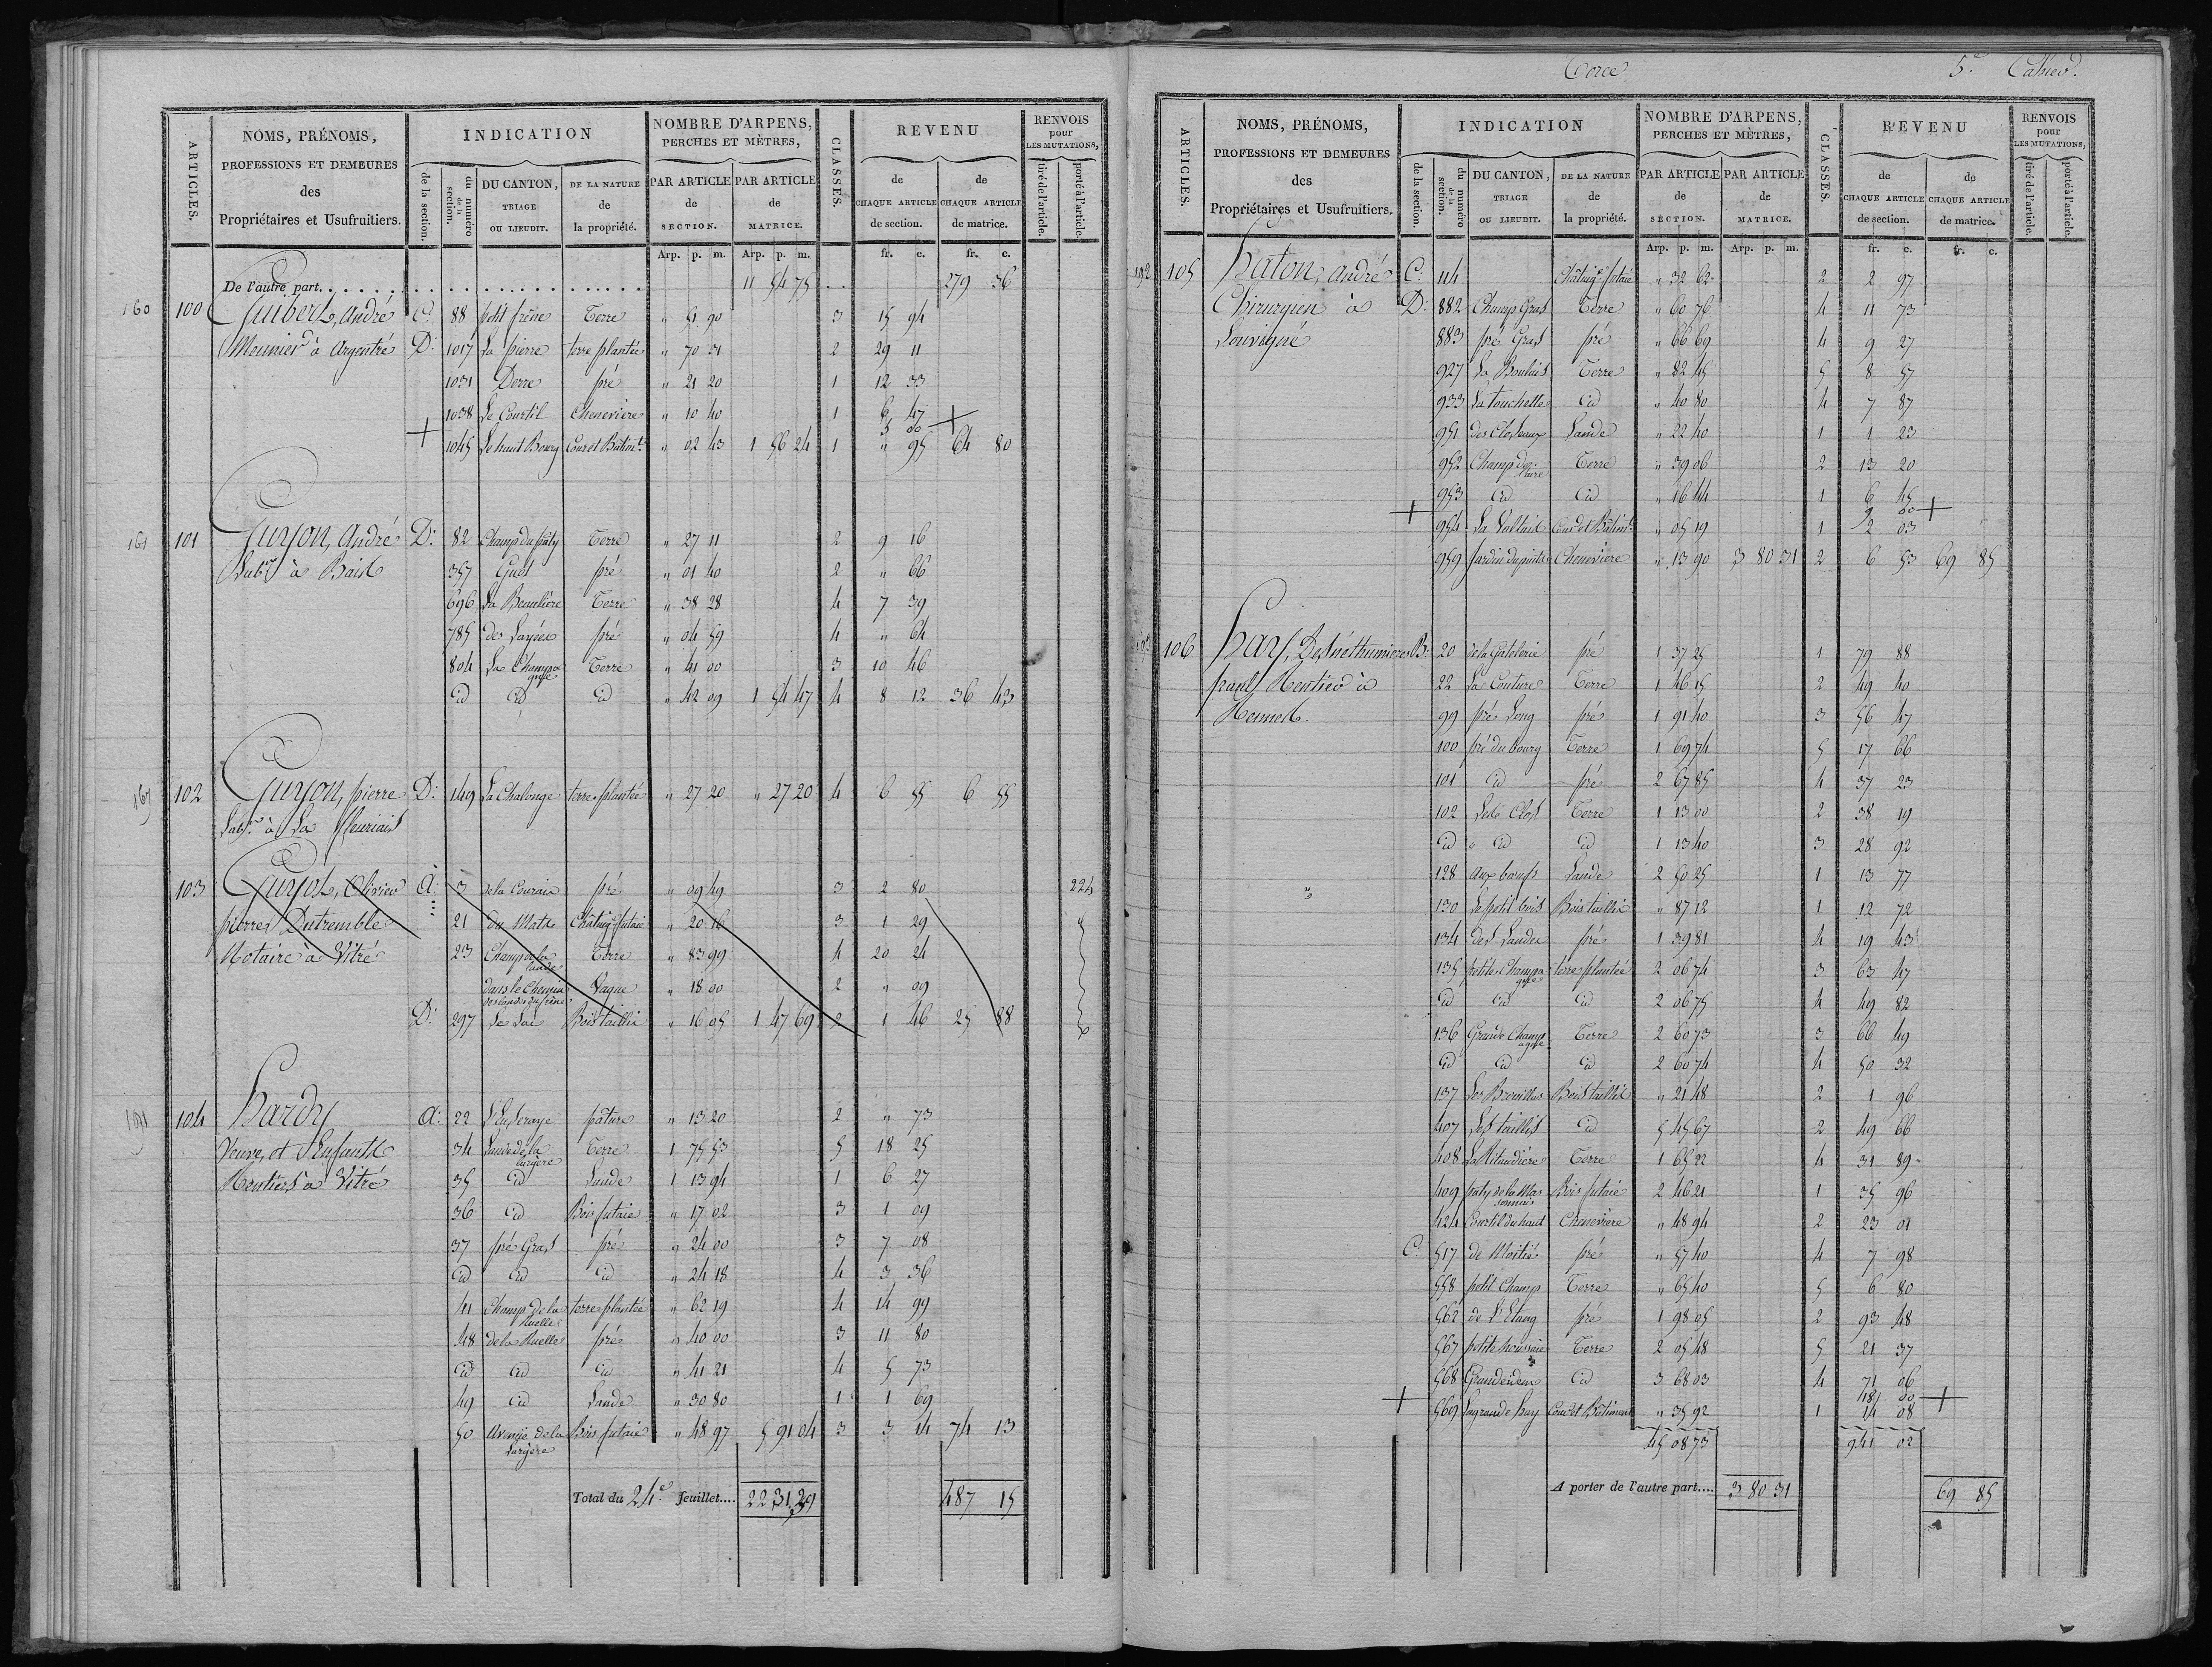 ARTICLES.
NOMS, PRÉNOMS,
PROFESSIONS ET DEMEURES
des
Propriétaires et Usufruitiers.
INDICATION
de la section.
du numéro de la section.
DU CANTON,
TRIAGE
OU LIEUDIT.
DE LA NATURE
de
la propriété.
NOMBRE D'ARPENS,
PERCHES ET MÈTRES,
PAR ARTICLE
de
SECTION.
PAR ARTICLE
de
MATRICE.
CLASSES.
REVENU
de
CHAQUE ARTICLE
de section.
de
CHAQUE ARTICLE
de matrice.
RENVOIS
pour
LES MUTATIONS,
tiré de l'article.
porté à l'article.
Arp. p. m. Arp. p. m. fr. c. fr. c.
De l'autre part. 11 54 75 279 36
160 100 Guibert, André C. 88 petit frêne Terre " 51 90 3 15 94
Meunier à Argentré D. 1017 La pierre terre plantée " 70 31 2 29 11
1031 Derre pré " 21 20 1 12 33
1038 Le Courtil Cheneviere " 10 40 1 6 47
+ 3 00 +
1045 Le haut Bourg Cour et Bâtimt. " 02 43 1 56 24 1 " 95 64 80
161 101 Guyon, André D. 82 Champ du paty Terre " 27 11 2 9 16
Labr. à Bais 357 Guet pré " 01 40 2 " 66
696 La Beauliere Terre " 38 28 4 7 39
785 des Layées pré " 04 59 4 " 64
804 La Champagne Terre " 41 00 3 10 46
id id id " 42 09 1 54 47 4 8 12 36 43
167 102 Guyon, pierre D. 149 La Chalonge terre plantée " 27 20 " 27 20 4 6 55 6 55
Labr. à La fleuriais
103 Guyot, Olivier A. 3 de la Couraie pré " 09 49 3 2 80 224
pierre Dutremble 21 du Mats Châtaigr. futaie " 20 16 3 1 29
Notaire à Vitré 23 Champ de la lande Terre " 83 99 4 20 24
dans le Chemin des landes du frêne Vague " 18 00 2 " 09
D. 297 Le Lac Bois taillis " 16 05 1 47 69 2 1 46 25 88
191 104 Hardy A. 22 pâture " 13 20 2 " 73
Veuve, et Enfants 34 Lande de la largere Terre 1 75 53 5 18 25
Rentiers à Vitré 35 id Lande 1 13 94 1 6 27
36 id Bois futaie " 17 02 3 1 09
37 pré Gras pré " 24 00 3 7 08
id id id " 24 18 4 3 36
41 Champ de la Ruelle terre plantée " 62 19 4 14 99
48 de la Ruelle pré " 40 00 3 11 80
id id id " 41 21 4 5 73
49 id Lande " 30 80 1 1 69
50 Avenue de la Largère Bois futaie " 48 97 5 91 04 3 3 14 74 13
Total du 24e. feuillet.... 22 31 29 487 15
Torcé 5e. Cahier.
ARTICLES.
NOMS, PRÉNOMS,
PROFESSIONS ET DEMEURES
des
Propriétaires et Usufruitiers.
INDICATION
de la section.
du numéro de la section.
DU CANTON,
TRIAGE
OU LIEUDIT.
DE LA NATURE
de
la propriété.
NOMBRE D'ARPENS,
PERCHES ET MÈTRES,
PAR ARTICLE
de
SECTION.
PAR ARTICLE
de
MATRICE.
CLASSES.
REVENU
de
CHAQUE ARTICLE
de section.
de
CHAQUE ARTICLE
de matrice.
RENVOIS
pour
LES MUTATIONS,
tiré de l'article.
porté à l'article.
Arp. p. m. Arp. p. m. fr. c. fr. c.
192 105 Haton, André C. 114 Châtaigr. futaie " 32 62 2 2 97
Chirurgien à D. 882 Champ Gras Terre " 60 76 4 11 73
Louvigné 883 pré Gras pré " 66 69 4 9 27
927 La Boulais Terre " 82 45 5 8 57
933 La touchette id " 40 80 4 7 87
951 des Closeaux Lande " 22 40 1 1 23
952 Champ de laire Terre " 39 06 2 13 20
953 id id " 16 44 1 6 45
+ 9 60 +
954 La Valtaie Cour et Bâtimt. " 05 19 1 2 03
959 Jardin du puits Cheneviere " 13 90 3 80 31 2 6 53 69 85
106 Hay, Desnéthumieres B. 20 de la Gatelerie pré 1 37 25 1 79 88
paul Rentier à 22 La Couture Terre 1 46 15 2 49 40
Rennes. 99 pré Long pré 1 91 40 3 56 47
100 pré du bourg Terre 1 69 74 5 17 66
101 id pré 2 67 85 4 37 23
102 Les Clos Terre 1 13 00 2 38 19
id id id 1 13 40 3 28 92
128 aux boeufs Lande 2 50 25 1 13 77
130 Le petit bois Bois taillis " 87 12 1 12 72
134 des Landes pré 1 39 81 4 19 43
135 petite Champagne terre plantée 2 06 74 3 63 47
id id id 2 06 75 4 49 82
136 Grande Champagne Terre 2 60 73 3 66 49
id id id 2 60 74 4 50 32
137 Les Brouillas Bois taillis " 21 48 2 1 96
407 Les taillis id 5 45 67 2 49 66
408 La Ritaudière Terre 1 65 22 4 31 89
409 paty de la Massonnais Bois futaie 2 46 21 1 35 96
424 Courtil du haut Cheneviere " 48 94 2 23 01
C. 517 de Moitié pré " 57 40 4 7 98
558 petit Champ Terre " 65 40 5 6 80
562 de l'Etang pré 1 98 05 2 93 48
567 petite houssaie Terre 2 05 48 5 21 37
568 Grande idem id 3 68 03 4 71 06
+ 481 00 +
569 La grande hay Cour et Bâtiment " 35 92 1 14 08
45 08 73 941 02
A porter de l'autre part.... 3 80 31 69 85